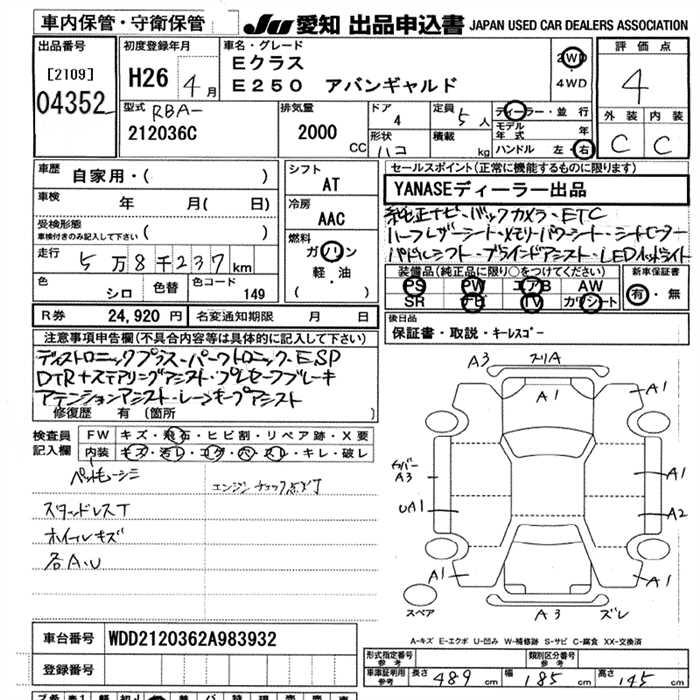 車内保管・守衛保管
JU 愛知 出品申込書 JAPAN USED CAR DEALERS ASSOCIATION
出品番号
[2109]
04352
初度登録年月
H26 4月
車名・グレード
Eクラス
E250 アバンギャルド
2WD
4WD
評価点
4
外装 内装
C C
型式
RBA-
212036C
排気量
2000
CC
ドア
4
形状
ハコ
定員
5人
積載
kg
ディーラー・並行
モデル年式 年
ハンドル 左・右
車歴
自家用・( )
車検
年 月( 日)
受検形態
車検付きのみ記入して下さい ( )
走行
5万8千237km
色
シロ
色替
色コード
149
シフト
AT
冷房
AAC
燃料
ガソリン
軽・油
( )
セールスポイント(正常に機能するものに限ります)
YANASEディーラー出品
純正ナビ・バックカメラ・ETC
ハーフレザーシート・メモリーパワーシート・シートヒーター
パドルシフト・ブラインドアシスト・LEDヘッドライト
装備品(純正品に限り○をつけてください)
PS PW エアB AW
SR ナビ TV カワシート
新車保証書
有・無
R券 24,920円 名変通知期限 月 日
後日品
保証書・取説・キーレスゴー
注意事項申告欄(不具合内容等は具体的に記入して下さい)
ディストロニックプラス・パークトロニック・ESP
DTR+ステアリングアシスト・プレセーフブレーキ
アテンションアシスト・レーンキープアシスト
修復歴 有 (箇所 )
検査員記入欄
FW キズ・飛石・ヒビ割・リペア跡・X要
内装 キズ・汚レ・コゲ・穴・スレ・キレ・破レ
ペットモーシミ
エンジンチェック点灯
スタッドレスT
ホイールキズ
各A.U
A3 スリA
A1
A1
カバーA3
UA1
A1
A2
A1
A1
A3 ズレ
スペア
A-キズ E-エクボ U-凹み W-補修跡 S-サビ C-腐食 XX-交換済
車台番号 WDD2120362A983932
登録番号
形式指定番号 参考
類別区分番号 参考
車庫証明用 参考 長さ 489cm 幅 185cm 高さ 145cm